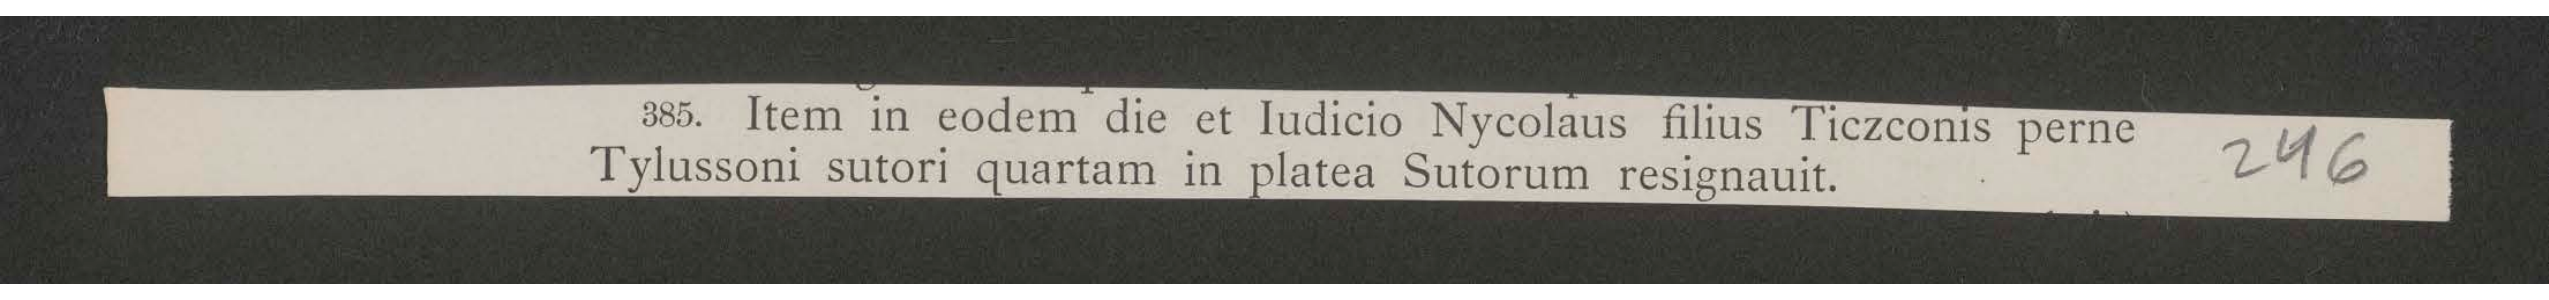 385. Item in eodem die et Iudicio Nycolaus filius Ticzconis perne
Tylussoni sutori quartam in platea Sutorum resignauit.
246